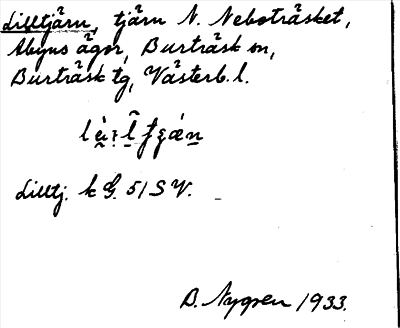 Lilltjärn, tjärn N. Neboträsket,
Åbyns ägor, Burträsk sn,
Burträsk tg, Västerb. l.
Lilltj. k G. 51 S V.
B. Nygren 1933.